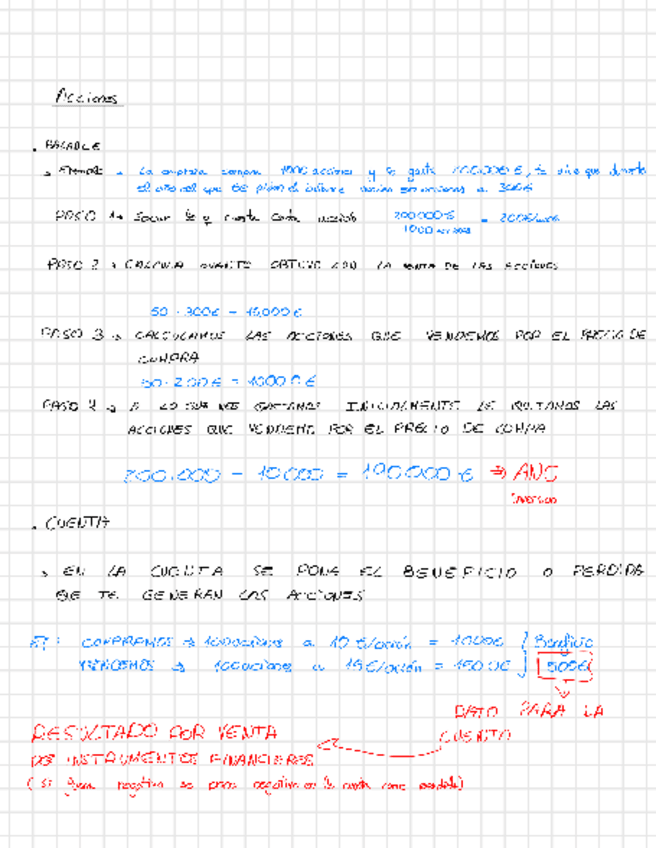 Acciones
. BALANCE
→ Ejemplo → La empresa compra 1000 acciones y se gasta 200.000€, te dice que durante
el año del que te piden el balance venden 50 acciones a 300€
PASO 1 → Sacar lo q cuesta cada acción 200000€ / 1000 acciones = 200€/acción
PASO 2 → CALCULA CUANTO OBTUVO CON LA VENTA DE LAS ACCIONES
50 · 300€ = 15.000€
PASO 3 → CALCULAMOS LAS ACCIONES QUE VENDEMOS POR EL PRECIO DE
COMPRA
50 · 200€ = 10000€
PASO 4 → A LO QUE NOS GASTAMOS INICIALMENTE LE QUITAMOS LAS
ACCIONES QUE VENDEMO POR EL PRECIO DE COMPRA
200.000 - 10000 = 190000€ ⇒ ANC
Inversion
. CUENTA
→ EN LA CUENTA SE PONE EL BENEFICIO O PERDIDA
QUE TE GENERAN LAS ACCIONES
EJ: COMPRAMOS → 100 acciones a 10€/acción = 1000€ } Beneficio
VENDEMOS → 100 acciones a 15€/acción = 1500€ } 500€
DATO PARA LA
CUENTA
RESULTADO POR VENTA
DE INSTRUMENTOS FINANCIEROS
(Si fuera negativo se pone negativo en la cuenta como perdida)